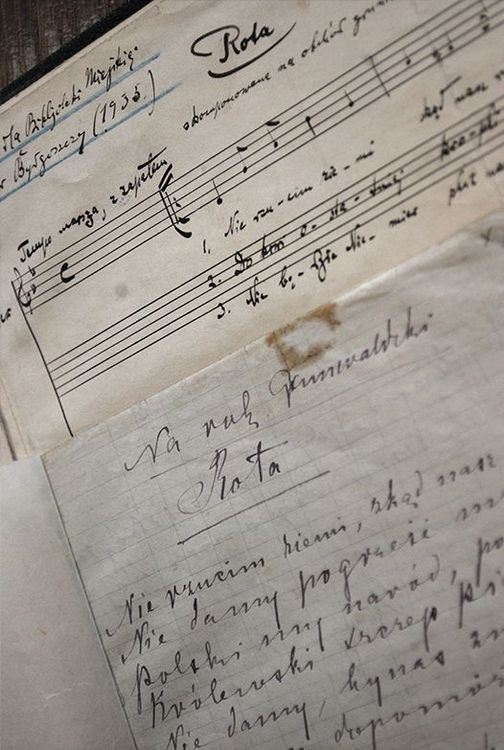 Rota
dla Bibljoteki Miejskiej
w Bydgoszczy (1935.)
skomponowane na obchód
Tempo marsza, z zapałem
1. Nie rzu-cim zie-mi skąd nasz
2. Do krwi o-sta-tniej kro-pli
3. Nie bę-dzie Nie-miec pluł na
Na rok Grunwaldzki
Rota
Nie rzucim ziemi, skąd nasz
Nie damy pogrześć m
Polski my naród, po
Królewski szczep Pi
Nie damy, by nas zn